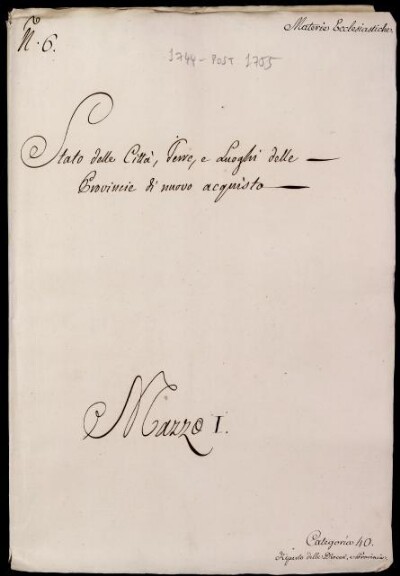 N.° 6.
Materie Ecclesiastiche
1744 - POST 1755
Stato delle Città, Terre, e Luoghi delle
Provincie di nuovo acquisto
Mazzo I.
Categoria 40.
Riparto delle Diocesi, e Provincie